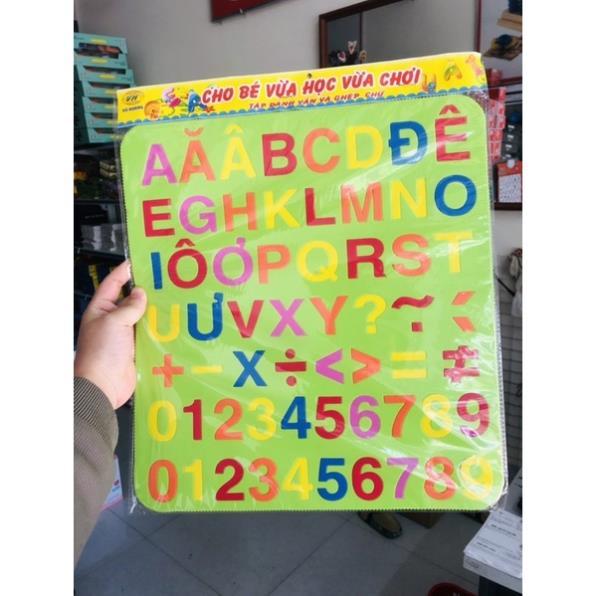 VH
CHO BÉ VỪA HỌC VỪA CHƠI
TẬP ĐÁNH VẦN VÀ GHÉP CHỮ
A Ă Â B C D Đ Ê
E G H K L M N O
I Ô Ơ P Q R S T
U Ư V X Y ? ~ <
+ - X ÷ < > = ≠
0 1 2 3 4 5 6 7 8 9
0 1 2 3 4 5 6 7 8 9